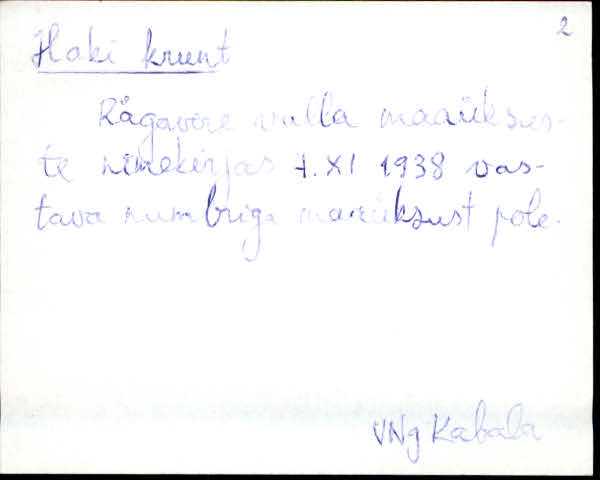 2
Haki krunt
Rägavere valla maaüksus-
te nimekirjas 7. XI 1938 vas-
tava numbriga maaüksust pole.
VNg Kabala